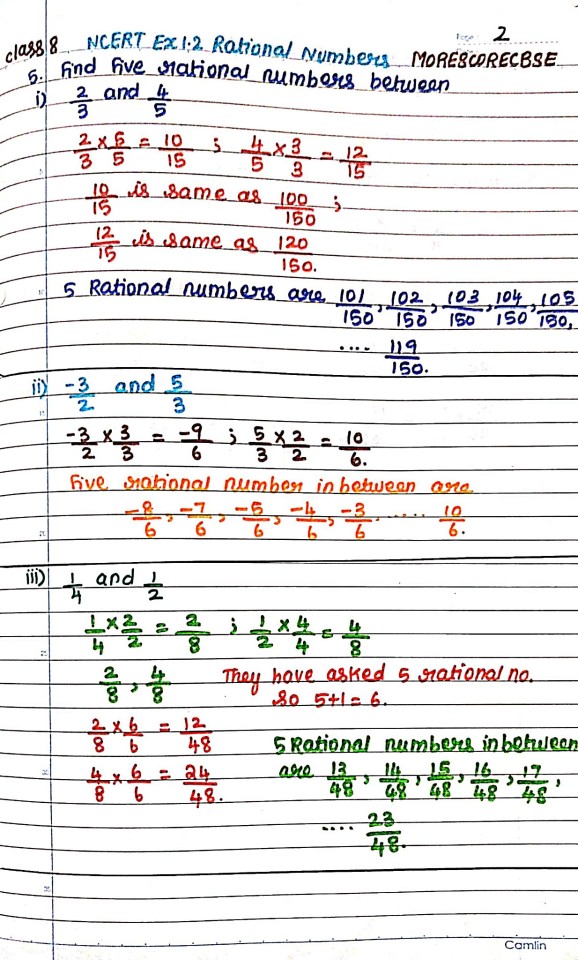 2
class 8 NCERT Ex 1.2 Rational Numbers MORESCORECBSE
5. Find five rational numbers between
i) 2/3 and 4/5
2/3 × 5/5 = 10/15 ; 4/5 × 3/3 = 12/15
10/15 is same as 100/150 ;
12/15 is same as 120/150.
5 Rational numbers are 101/150, 102/150, 103/150, 104/150, 105/150,
.... 119/150.
ii) -3/2 and 5/3
-3/2 × 3/3 = -9/6 ; 5/3 × 2/2 = 10/6.
Five rational number in between are
-8/6, -7/6, -5/6, -4/6, -3/6 .... 10/6.
iii) 1/4 and 1/2
1/4 × 2/2 = 2/8 ; 1/2 × 4/4 = 4/8
2/8, 4/8 They have asked 5 rational no.
so 5+1 = 6.
2/8 × 6/6 = 12/48
4/8 × 6/6 = 24/48.
5 Rational numbers in between
are 13/48, 14/48, 15/48, 16/48, 17/48,
.... 23/48.
Camlin